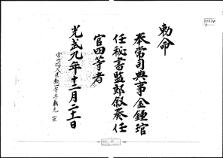 勅命
奉常司典事金鍾瑄
任秘書監郎敍奏任
官四等者
光武九年十二月二十二日